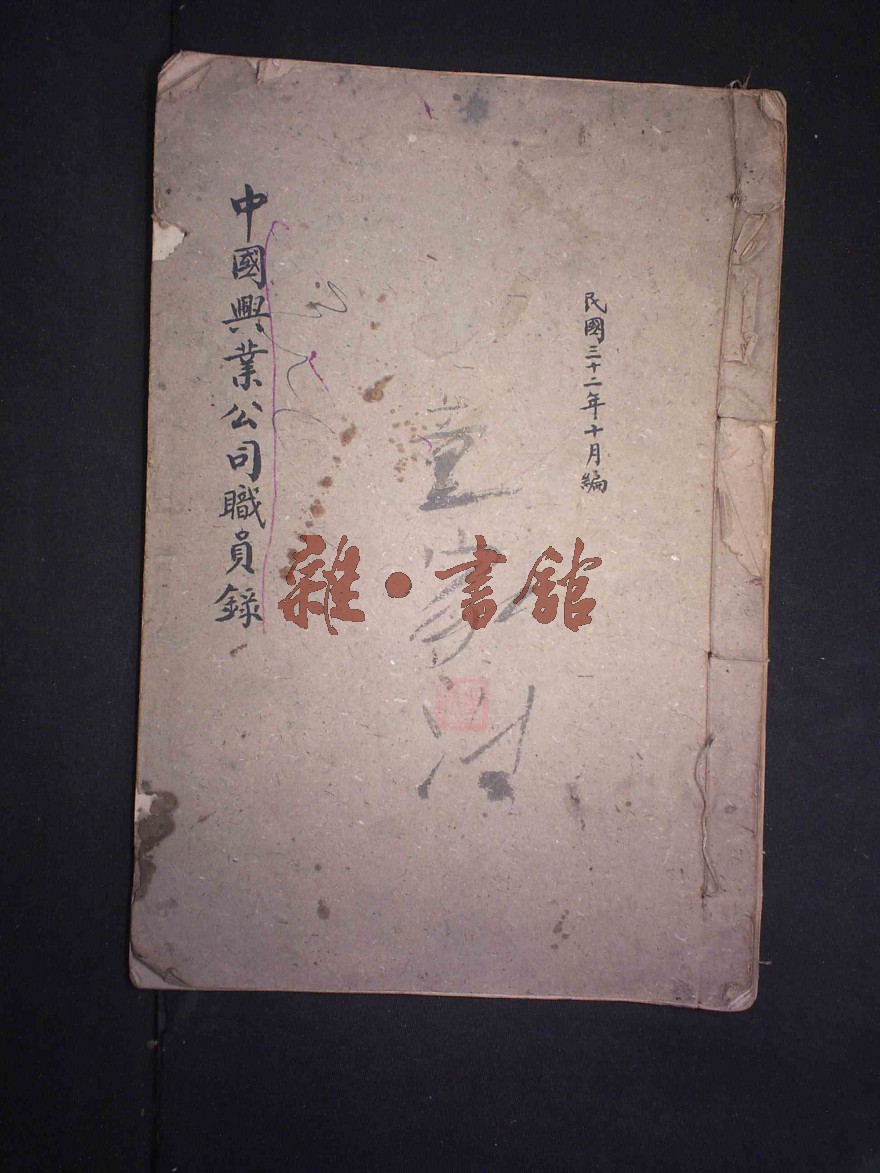 民國三十二年十月編
中國興業公司職員錄
雜·書舘